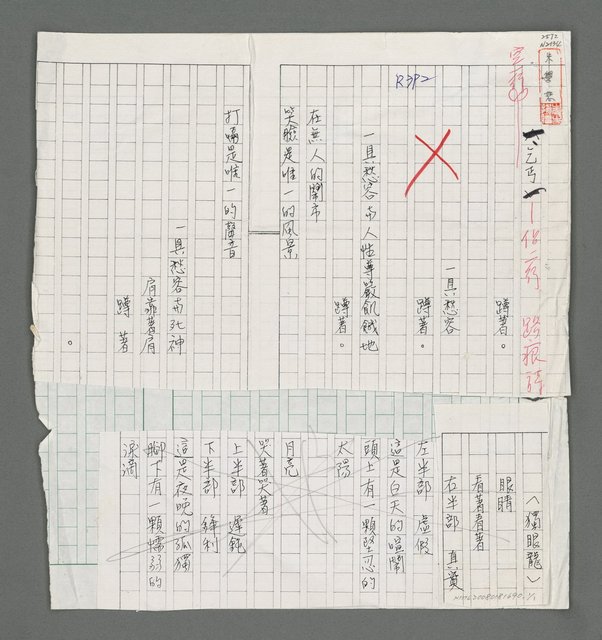 2592
R392
朱學恕
〈乞丐〉
蹲著。
一具愁容
蹲著。
一具愁容與人性尊嚴飢餓地
蹲著。
在無人的鬧市
笑臉是唯一的風景
打嗝是唯一的聲音
一具愁容與死神
肩靠著肩
蹲著
。
〈獨眼龍〉
眼睛
看著看著
右半部 真實
左半部 虛假
這是白天的喧鬧
頭上有一顆堅忍的
太陽
月亮
哭著哭著
上半部 遲鈍
下半部 鋒利
這是夜晚的孤獨
腳下有一顆懦弱的
淚滴
NMTL20080181690.1/1